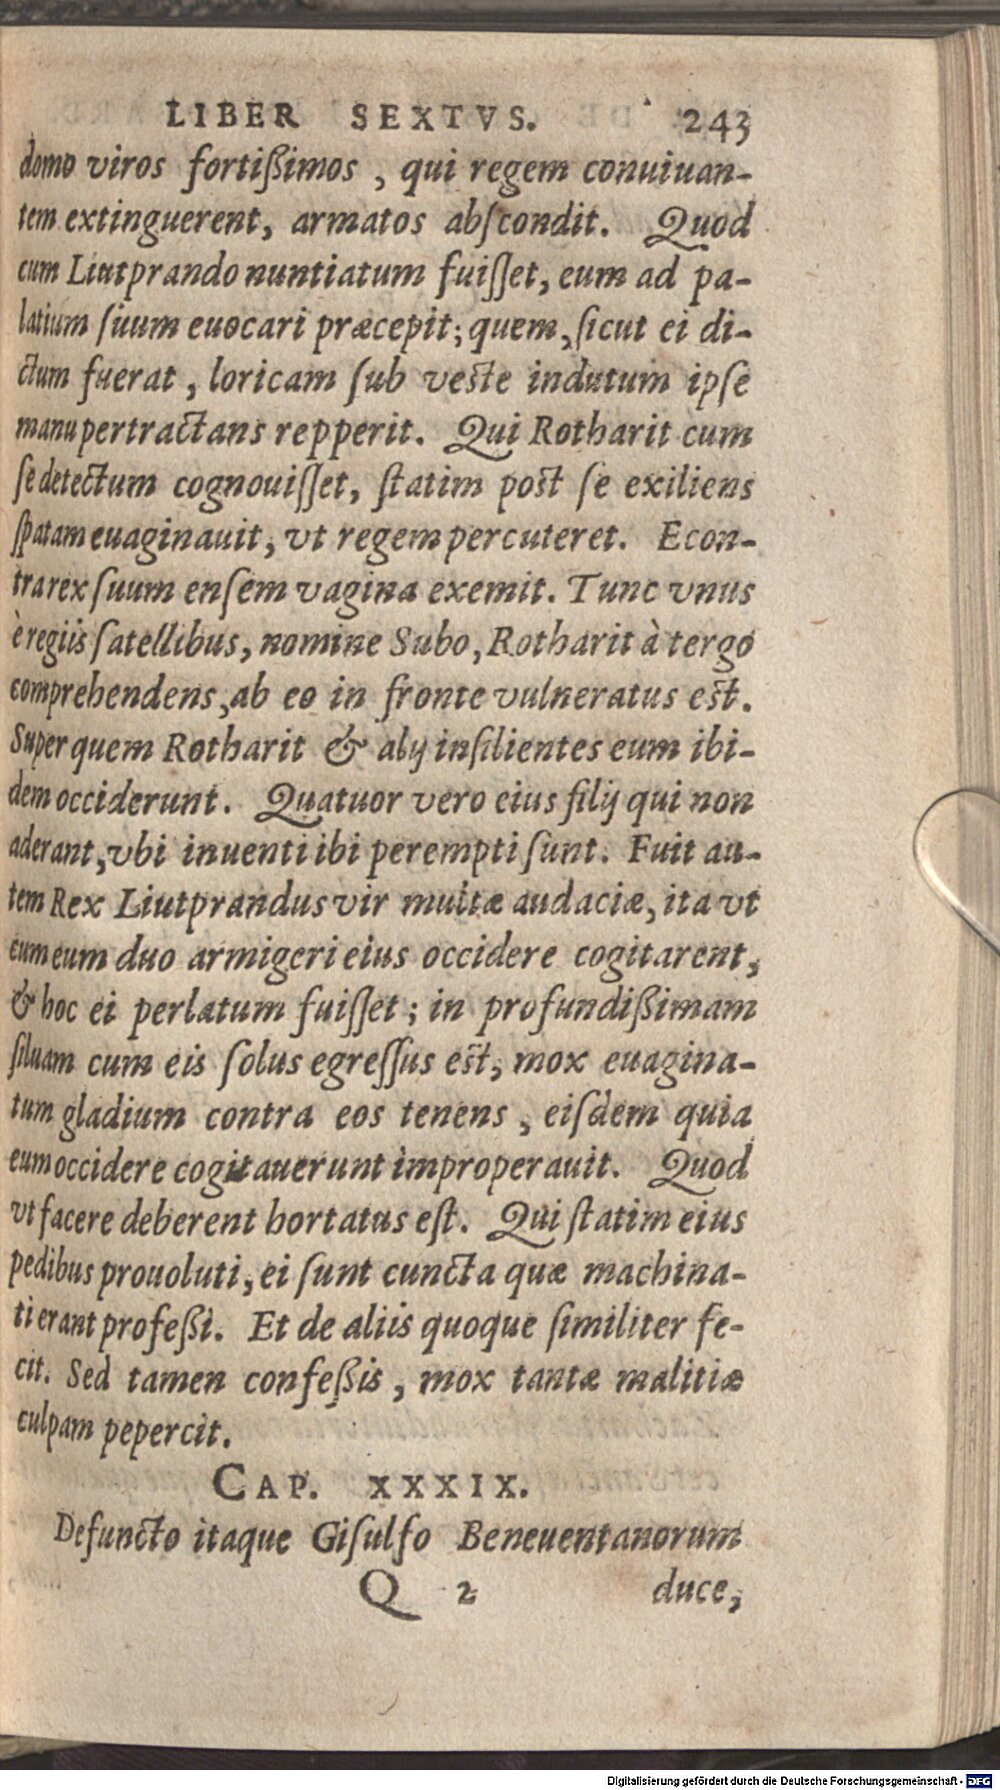 LIBER SEXTVS. 243
domo viros fortißimos, qui regem conuiuan-
tem extinguerent, armatos abſcondit. Quod
cum Liutprando nuntiatum fuiſſet, eum ad pa-
latium ſuum euocari præcepit; quem, ſicut ei di-
ctum fuerat, loricam ſub veſte indutum ipſe
manu pertractans repperit. Qui Rotharit cum
ſe detectum cognouiſſet, ſtatim poſt ſe exiliens
ſpatam euaginauit, vt regem percuteret. Econ-
tra rex ſuum enſem vagina exemit. Tunc vnus
è regiis ſatellibus, nomine Subo, Rotharit à tergo
comprehendens, ab eo in fronte vulneratus eſt.
Super quem Rotharit & alij inſilientes eum ibi-
dem occiderunt. Quatuor vero eius filij qui non
aderant, vbi inuenti ibi perempti ſunt. Fuit au-
tem Rex Liutprandus vir multæ audaciæ, ita vt
cum eum duo armigeri eius occidere cogitarent,
& hoc ei perlatum fuiſſet; in profundißimam
ſiluam cum eis ſolus egreſſus eſt, mox euagina-
tum gladium contra eos tenens, eiſdem quia
eum occidere cogitauerunt improperauit. Quod
vt facere deberent hortatus eſt. Qui ſtatim eius
pedibus prouoluti, ei ſunt cuncta quæ machina-
ti erant profeßi. Et de aliis quoque ſimiliter fe-
cit. Sed tamen confeßis, mox tantæ malitiæ
culpam pepercit.
CAP. XXXIX.
Defuncto itaque Giſulfo Beneuentanorum
Q 2 duce,
Digitalisierung gefördert durch die Deutsche Forschungsgemeinschaft - DFG